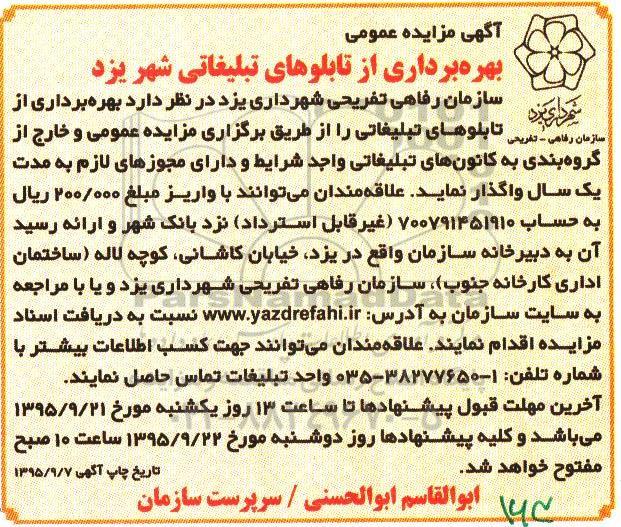 آگهی مزایده عمومی
بهره‌برداری از تابلوهای تبلیغاتی شهر یزد
شهرداری یزد
سازمان رفاهی - تفریحی
سازمان رفاهی تفریحی شهرداری یزد در نظر دارد بهره‌برداری از
تابلوهای تبلیغاتی را از طریق برگزاری مزایده عمومی و خارج از
گروه‌بندی به کانون‌های تبلیغاتی واجد شرایط و دارای مجوزهای لازم به مدت
یک سال واگذار نماید. علاقه‌مندان می‌توانند با واریز مبلغ ۲۰۰/۰۰۰ ریال
به حساب ۷۰۰۷۹۱۴۵۱۹۱۰ (غیرقابل استرداد) نزد بانک شهر و ارائه رسید
آن به دبیرخانه سازمان واقع در یزد، خیابان کاشانی، کوچه لاله (ساختمان
اداری کارخانه جنوب)، سازمان رفاهی تفریحی شهرداری یزد و یا با مراجعه
به سایت سازمان به آدرس: www.yazdrefahi.ir نسبت به دریافت اسناد
مزایده اقدام نمایند. علاقه‌مندان می‌توانند جهت کسب اطلاعات بیشتر با
شماره تلفن: ۱-۳۸۲۷۷۶۵۰-۰۳۵ واحد تبلیغات تماس حاصل نمایند.
آخرین مهلت قبول پیشنهادها تا ساعت ۱۳ روز یکشنبه مورخ ۱۳۹۵/۹/۲۱
می‌باشد و کلیه پیشنهادها روز دوشنبه مورخ ۱۳۹۵/۹/۲۲ ساعت ۱۰ صبح
مفتوح خواهد شد.
تاریخ چاپ آگهی ۱۳۹۵/۹/۷
ابوالقاسم ابوالحسنی / سرپرست سازمان
ParsNamadData